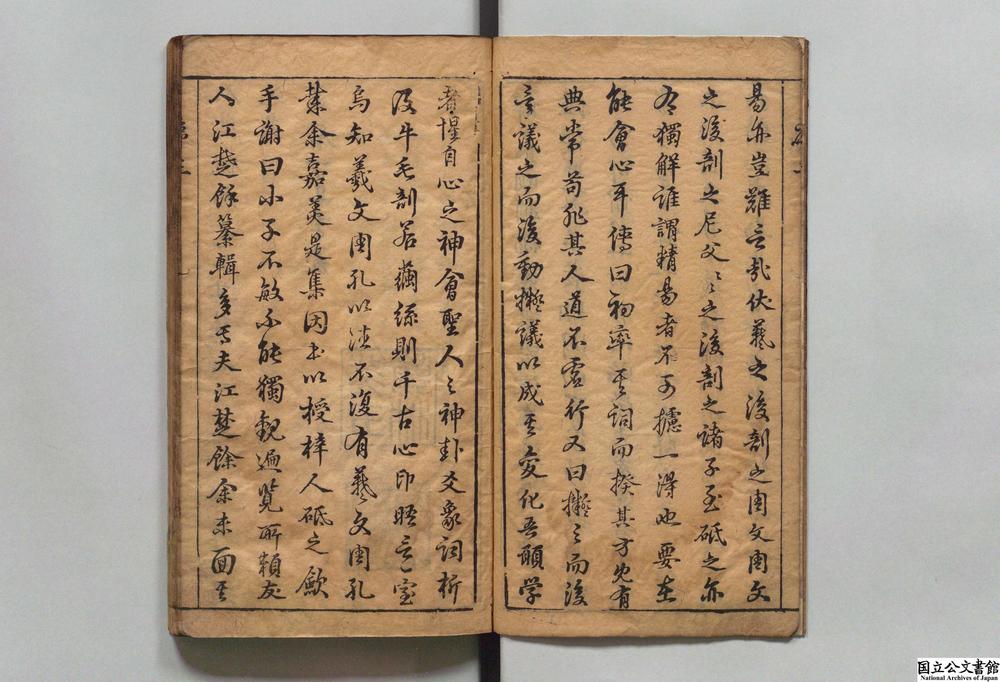 易亦豈難言哉伏羲之後剖之周文周文
之後剖之尼父々之後剖之諸子至砥之亦
有獨解誰謂精易者不可攄一得也要在
能會心耳傳曰初率其詞而揆其方既有
典常苟非其人道不虛行又曰擬之而後
言議之而後動擬議以成其變化吾願学
者惺自心之神會聖人之神卦爻象詞析
及牛毛剖若繭絲則千古心印晤言一室
烏知羲文周孔以後不復有羲文周孔
葉余嘉美是集因出以授梓人砥之歛
手謝曰小子不敏不能獨觀遍覧所賴友
人江楚餘纂輯多焉夫江楚餘余未面其
国立公文書館
National Archives of Japan